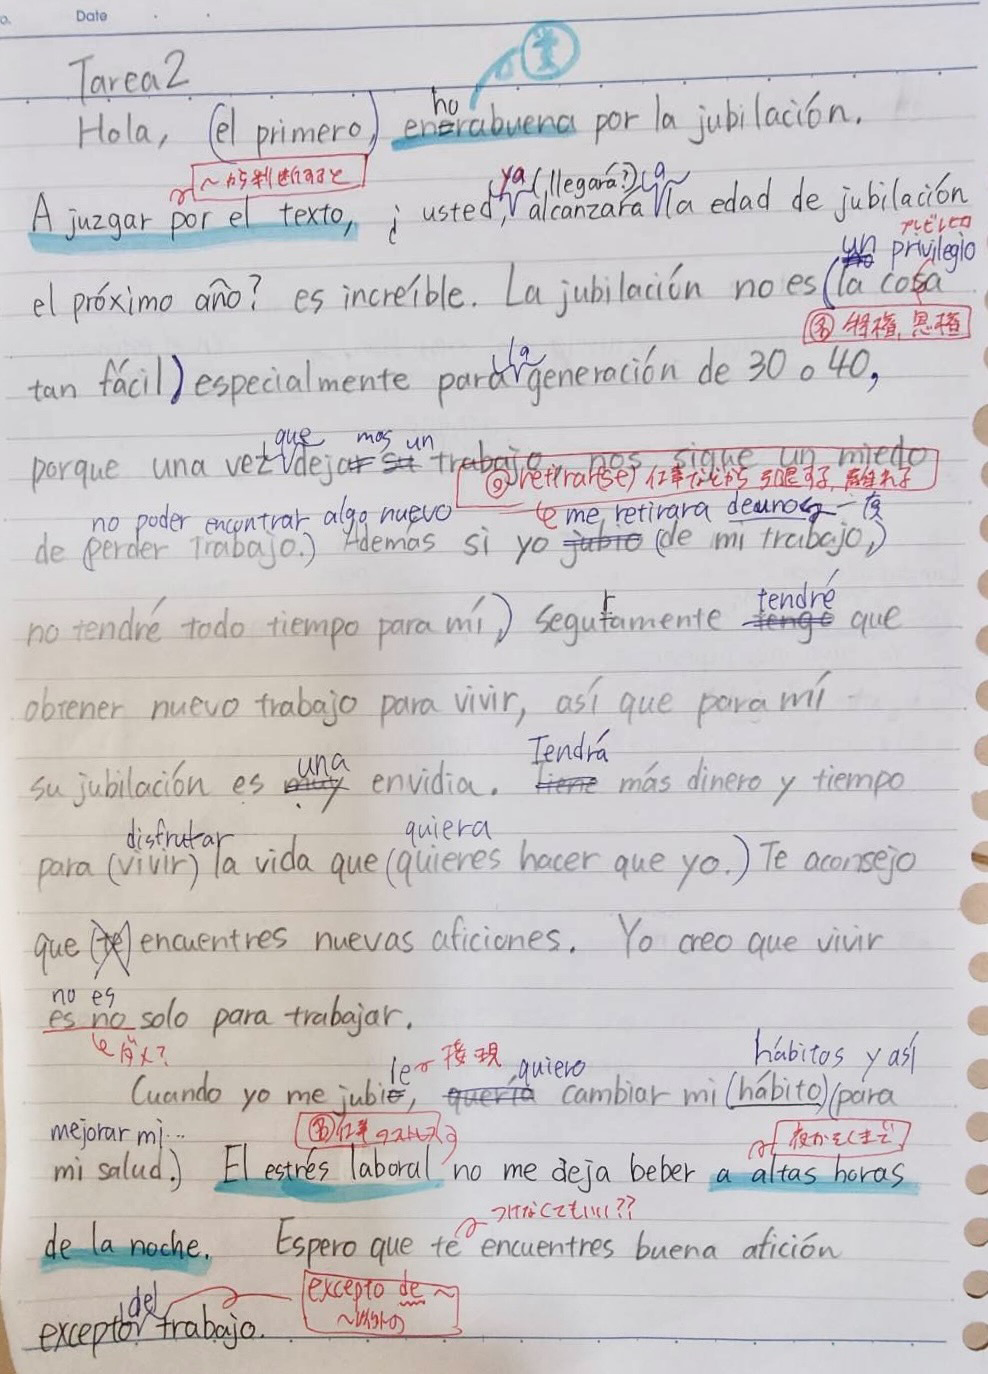 Date
Tarea 2
ho
Hola, (el primero) enerabuena por la jubilación.
~から判断すると
ya (¿llegará?) a
A juzgar por el texto, ¿ usted, alcanzará la edad de jubilación
アレビレヒロ
un privilegio
el próximo año? es increíble. La jubilación no es (la cosa
㊚ 特権, 恩権
la
tan fácil) especialmente para generación de 30 o 40,
que mos un
porque una vez dejar su trabajo nos sigue un miedo
retirar(se) 仕事などから 引退する, 離れる
no poder encontrar algo nuevo me retirara de uno
de (perder trabajo.) Ademas si yo jubio (de mi trabajo,)
r tendré
no tendré todo tiempo para mí,) Segutamente tengo que
obtener nuevo trabajo para vivir, así que para mí
una Tendrá
su jubilación es muy envidia. tiene más dinero y tiempo
disfrutar quiera
para (vivir) la vida que (quieres hacer que yo.) Te aconsejo
que (te) encuentres nuevas aficiones. Yo creo que vivir
no es
es no solo para trabajar.
ダメ?
le 接現 quiero hábitos y así
Cuando yo me jubie, quería cambiar mi (hábito) (para
mejorar mi...
㊚ 仕事のストレス 夜おそくまで
mi salud.) El estrés laboral no me deja beber a altas horas
つけなくてもいい??
de la noche. Espero que te encuentres buena afición
del excepto de ~
excepto trabajo.
~以外の